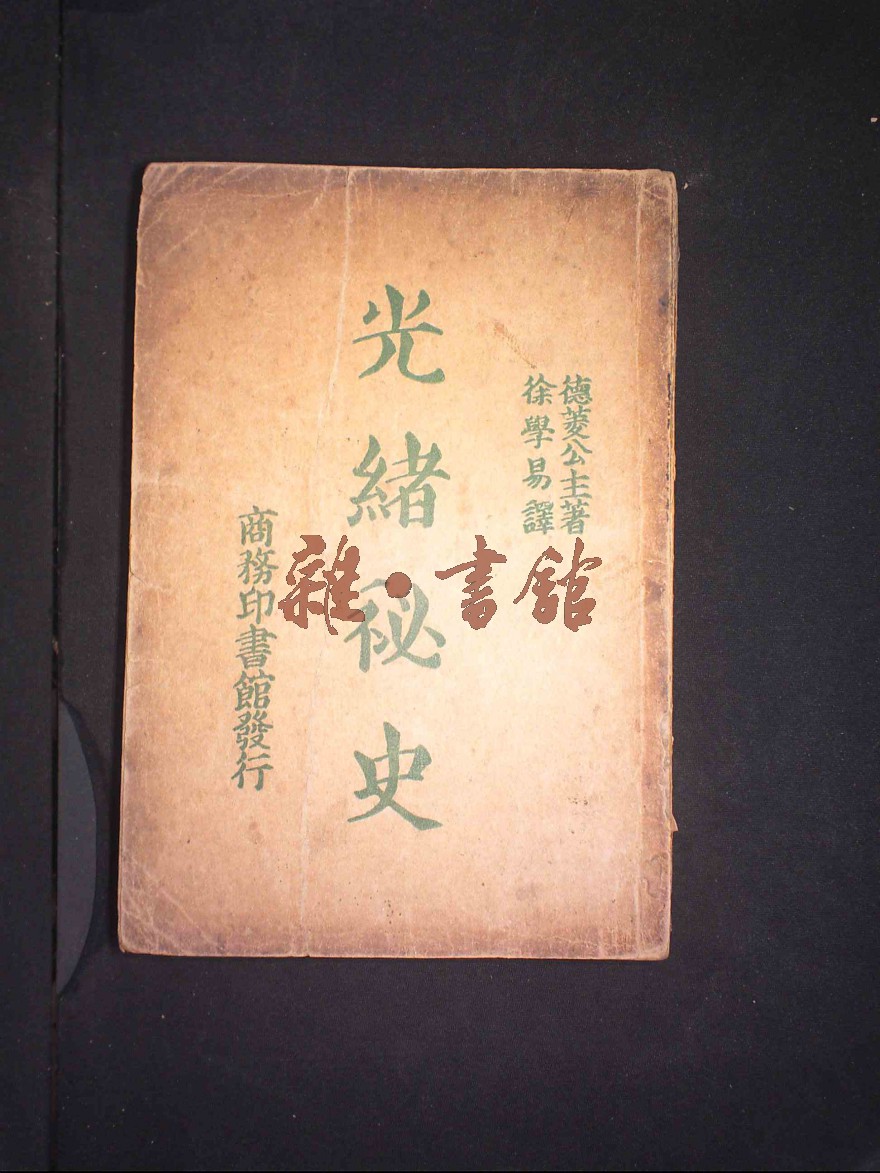 德菱公主著
徐學易譯
光緒秘史
商務印書館發行
雜·書館